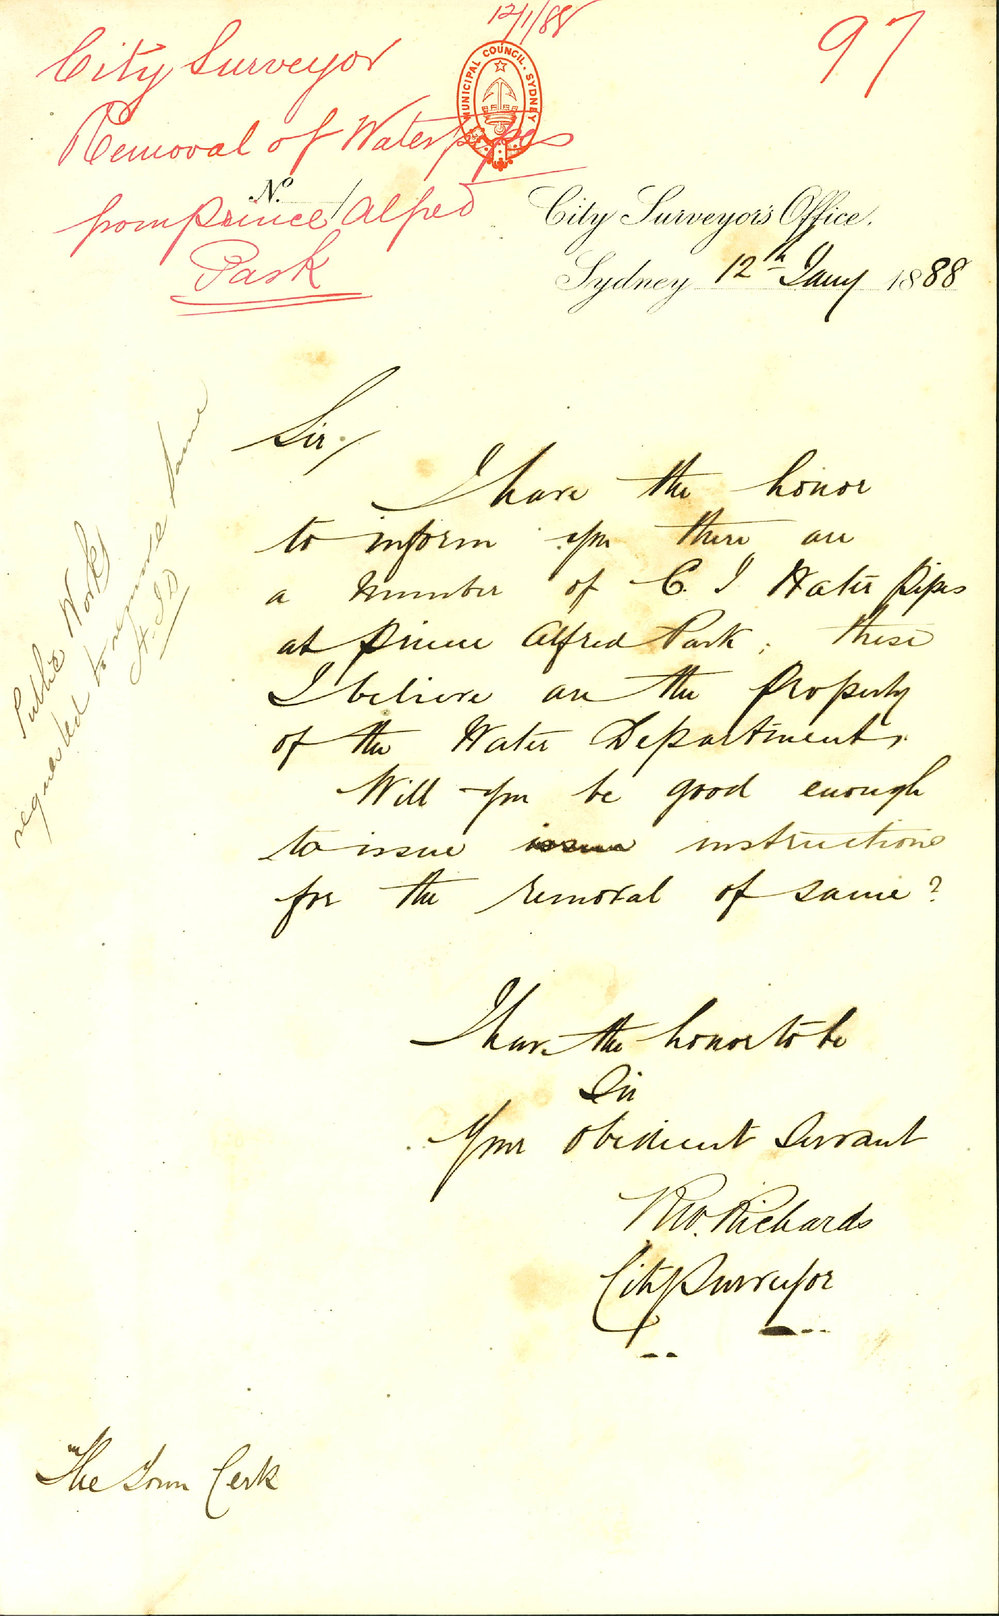 12/1/88
97
City Surveyor
Removal of Waterpipes
from Prince Alfred
Park
MUNICIPAL COUNCIL. SYDNEY
No.
City Surveyor's Office.
Sydney 12th Jany 1888
Public Works
requested to remove same
Sir./
I have the honor
to inform you there are
a Number of C. I Water Pipes
at Prince Alfred Park; these
I believe are the Property
of the Water Department.
Will you be good enough
to issue issue instructions
for the removal of same?
I have the honor to be
Sir
Your Obedient Servant
RW. Richards
City Surveyor
The Town Clerk